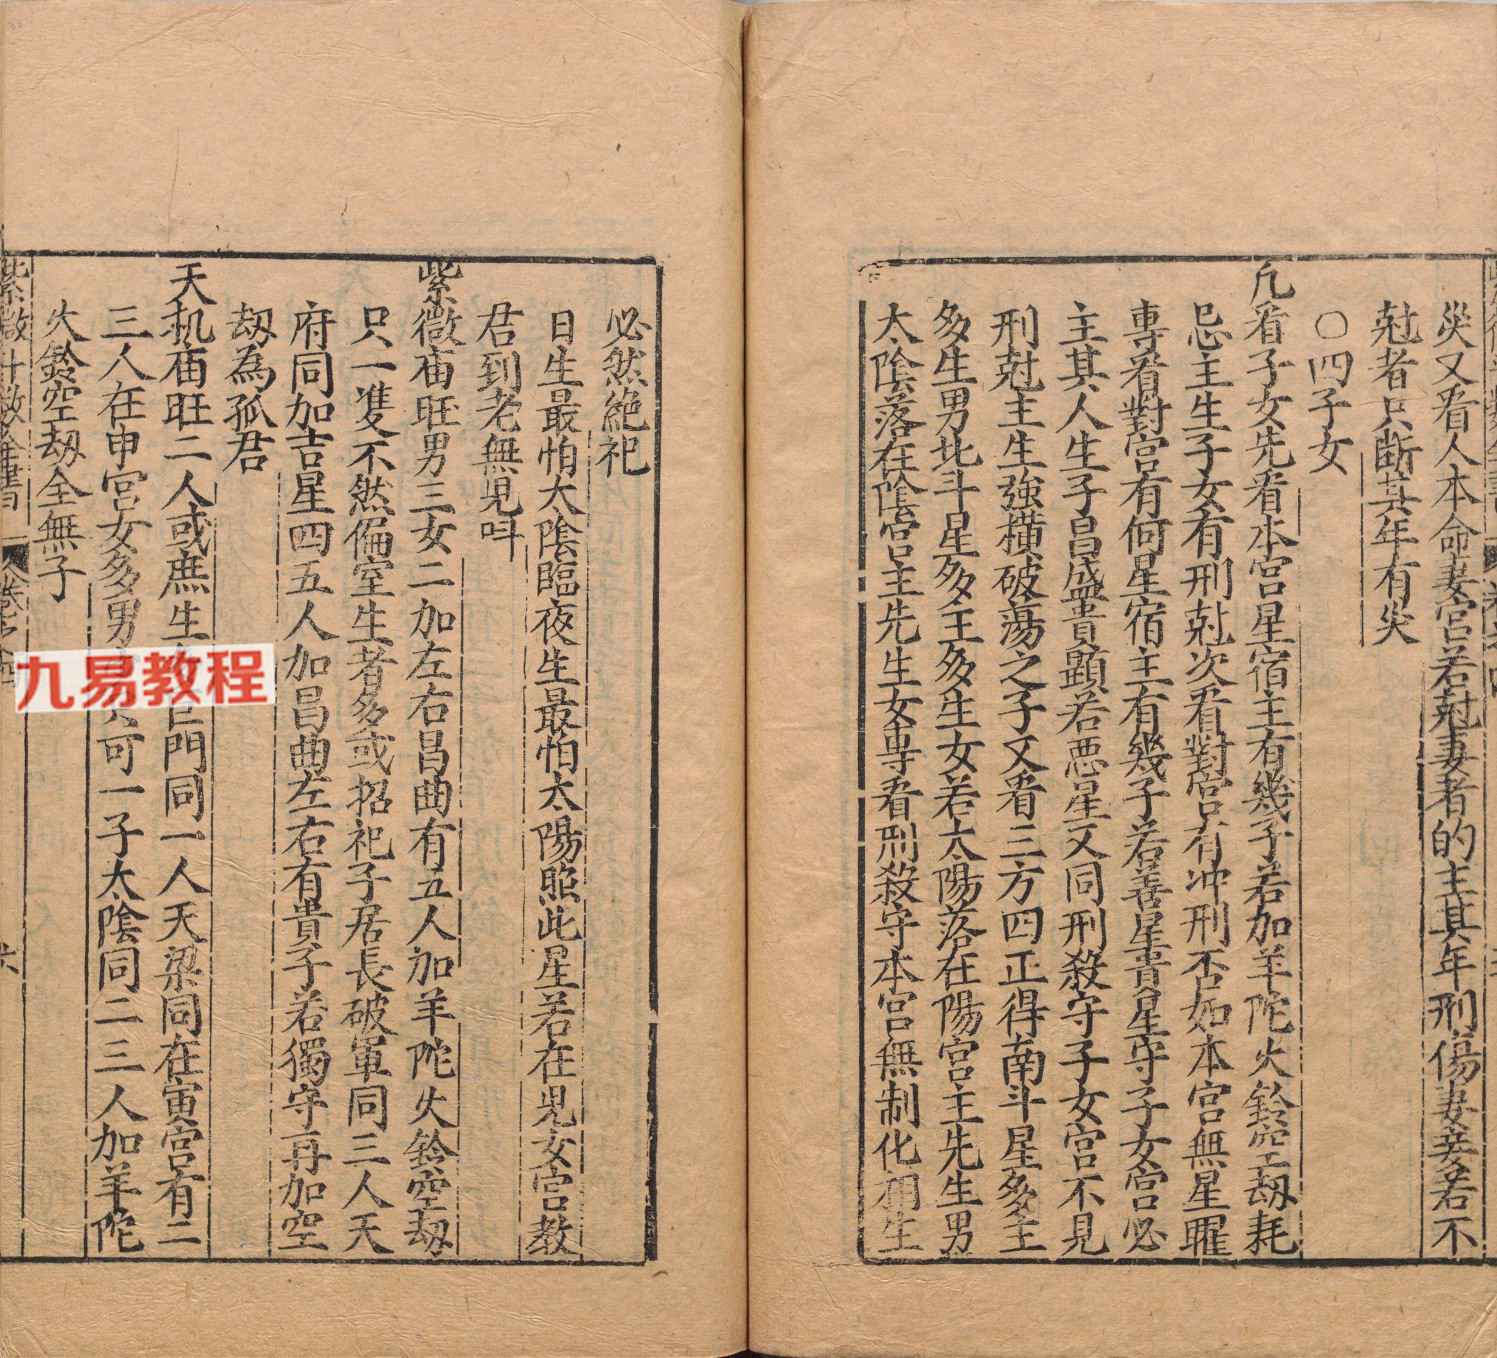 災又看人本命妻宮若尅妻者的主其年刑傷妻妾若不
尅者只斷其年有災
○四子女
凢看子女先看本宮星宿主有幾子若加羊陀火鈴空劫耗
忌主生子女有刑尅次看對宮有冲刑否如本宮無星曜
專看對宮有何星宿主有幾子若善星貴星守子女宮必
主其人生子昌盛貴顕若悪星又同刑殺守子女宮不見
刑尅主生強横破蕩之子又看三方四正得南斗星多主
多生男北斗星多主多生女若太陽落在陽宮主先生男
太陰落在陰宮主先生女専看刑殺守本宮無制化相生
必然絶祀
日生最怕太陰臨夜生最怕太陽照此星若在児女宮教
君到老無児呌
紫微庙旺男三女二加左右昌曲有五人加羊陀火鈴空劫
只一隻不然偏室生者多或招祀子居長破軍同三人天
府同加吉星四五人加昌曲左右有貴子若獨守再加空
劫為孤君
天机庙旺二人或庶生巨門同一人天梁同在寅宮有二
三人在申宮女多男可一子太陰同二三人加羊陀
火鈴空劫全無子
九易教程